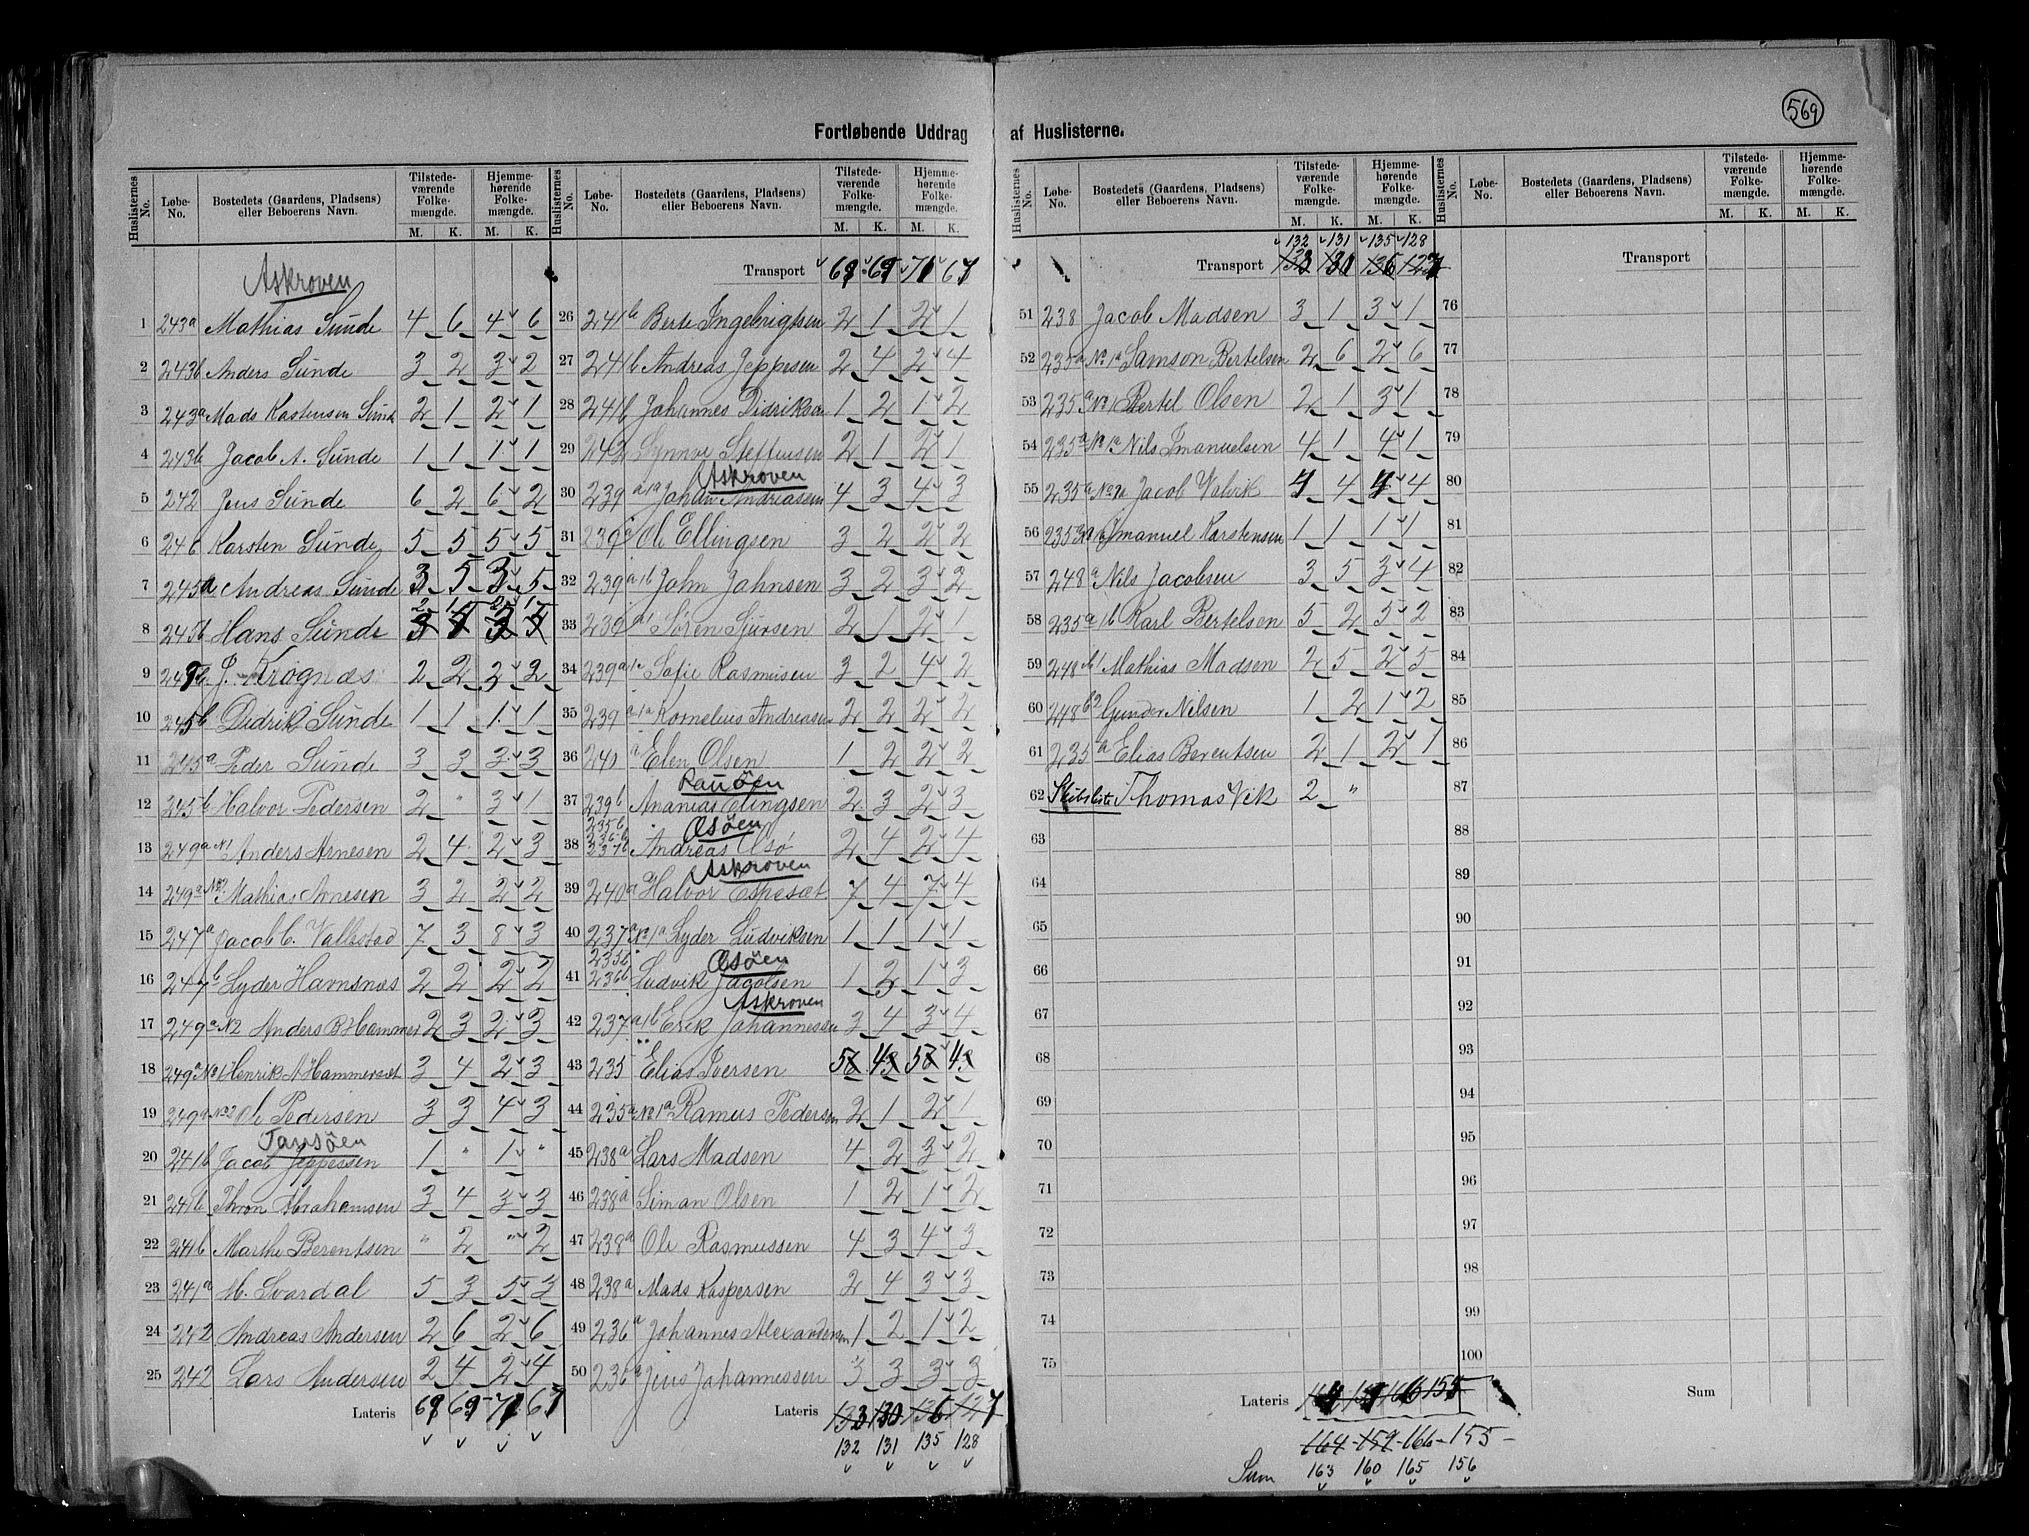 569
Fortløbende Uddrag af Huslisterne.
Huslisternes No. Løbe-No. Bostedets (Gaardens, Pladsens) eller Beboerens Navn. Tilstedeværende Folkemængde. M. K. Hjemmehørende Folkemængde. M. K.
Askroven
1 243a Mathias Sunde 4 6 4 6
2 243b Anders Sunde 3 2 3 2
3 243a Mads Kastensen Sunde 2 1 2 1
4 243b Jacob A. Sunde 1 1 1 1
5 242 Jens Sunde 6 2 6 2
6 246 Karsten Sunde 5 5 5 5
7 245a Andreas Sunde 3 5 3 5
8 245b Hans Sunde 2 1 2 1
9 J. Krognæs 2 2 2 2
10 245b Didrik Sunde 1 1 1 1
11 245a Peder Sunde 3 3 3 3
12 245b Halvor Pedersen 2 " 3 1
13 249a N1 Anders Arnesen 2 4 2 3
14 249a N2 Mathias Arnesen 3 2 2 2
15 247a Jacob C. Vallestad 7 3 8 3
16 247b Lyder Havnsnæs 2 2 2 2
17 249a N2 Anders B Hammer 2 3 2 3
18 249a No 1 Henrik A Hammerset 3 4 2 3
19 249a No 2 Ole Pedersen 3 3 4 3
Tansøen
20 241b Jacob Jeppessen 1 " 1 "
21 241b Thron Abrahamsen 3 4 3 3
22 241b Marthe Berentsen " 2 " 2
23 241a M. Svardal 5 3 5 3
24 242 Andreas Andersen 2 6 2 6
25 242 Lars Andersen 2 4 2 4
Lateris 69 69 71 67
Transport 69 69 71 67
26 241b Berte Ingebrigtsen 2 1 2 1
27 241b Andreas Jeppesen 2 4 2 4
28 241b Johannes Didriksen 1 2 1 2
29 242 Synnve Steffensen 2 1 2 1
Askroven
30 239 a1a Johan Andreasen 4 3 4 3
31 239 Ole Ellingsen 3 2 2 2
32 239 a1b John Johnsen 3 2 3 2
33 239 a1 Søren Sjursen 2 1 2 1
34 239a 1c Sofie Rasmusen 3 2 4 2
35 239 a1a Kornelius Andreasen 2 2 2 2
36 240 a Elen Olsen 1 2 2 2
Rauøen
37 239b Ananias Elingsen 2 3 2 3
Æsøen
38 235b 236b 237b Andreas Osø 2 4 2 4
Askroven
39 240a Halvor Espeset 7 4 7 4
40 237a No 1a Lyder Ludviksen 1 1 1 1
Æsøen
41 235b 236b Ludvik Jacobsen 1 3 1 3
Askroven
42 237 a1b Erik Johannessen 3 4 3 4
43 235 Elias Iversen 5 4 5 4
44 235a No 1a Ramus Pedersen 2 1 2 1
45 238a Lars Madsen 4 2 3 2
46 238a Siman Olsen 1 2 1 2
47 238a Ole Rasmussen 4 3 4 3
48 238a Mads Kaspersen 2 4 3 3
49 236a Johannes Alexandersen 1 2 1 2
50 236a Jens Johannessen 3 3 3 3
Lateris 133 130 136 127
132 131 135 128
132 131 135 128
Transport 133 130 136 127
51 238 Jacob Madsen 3 1 3 1
52 235a No 1a Samson Bertelsen 2 6 2 6
53 235a No 1 Bertel Olsen 2 1 3 1
54 235a No 1a Nils Imanuelsen 4 1 4 1
55 235a No 2a Jacob Valvik 4 4 4 4
56 235 Imanuel Karstensen 1 1 1 1
57 248a Nils Jacobsen 3 5 3 4
58 235a 1b Karl Bertelsen 5 2 5 2
59 248 b1 Mathias Madsen 2 5 2 5
60 248 b2 Gunder Nilsen 1 2 1 2
61 235a Elias Berentsen 2 1 2 1
62 Skibsliste Thomas Vik 2 "
63
64
65
66
67
68
69
70
71
72
73
74
75
Lateris 164 159 166 155
164 - 159 - 166 - 155 -
Sum 163 160 165 156
Transport
76
77
78
79
80
81
82
83
84
85
86
87
88
89
90
91
92
93
94
95
96
97
98
99
100
Sum